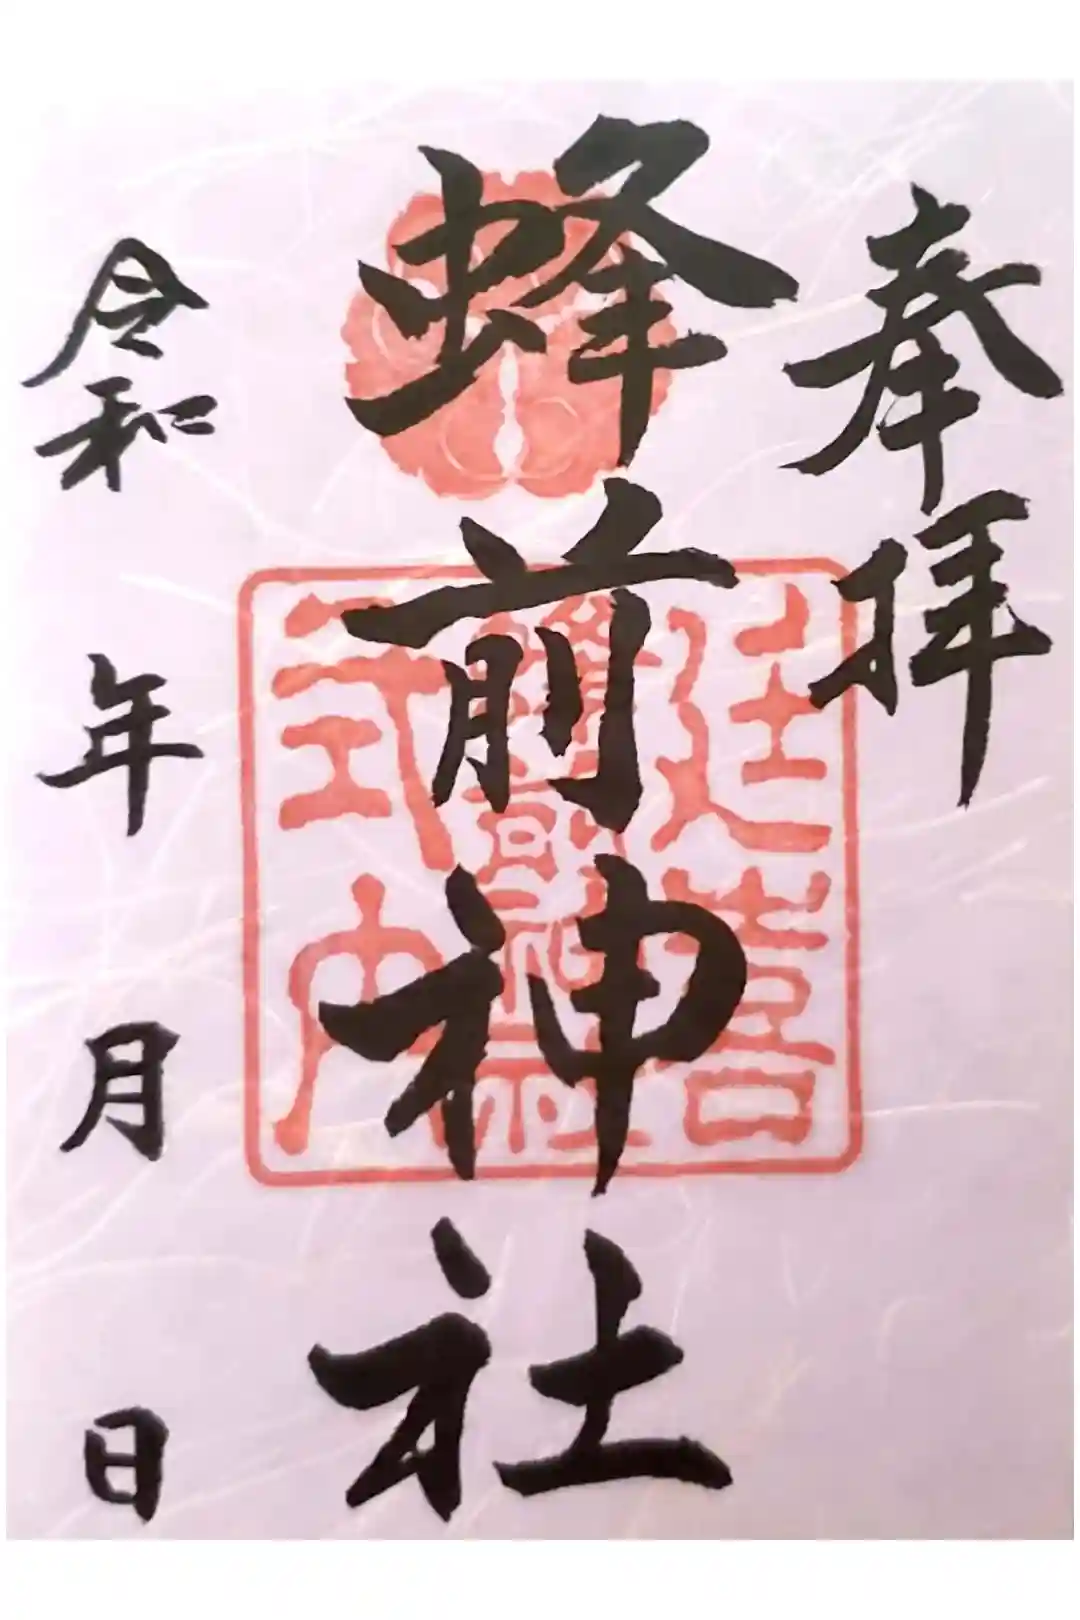 奉拝
蜂前神社
延喜
式内
令和 年 月 日